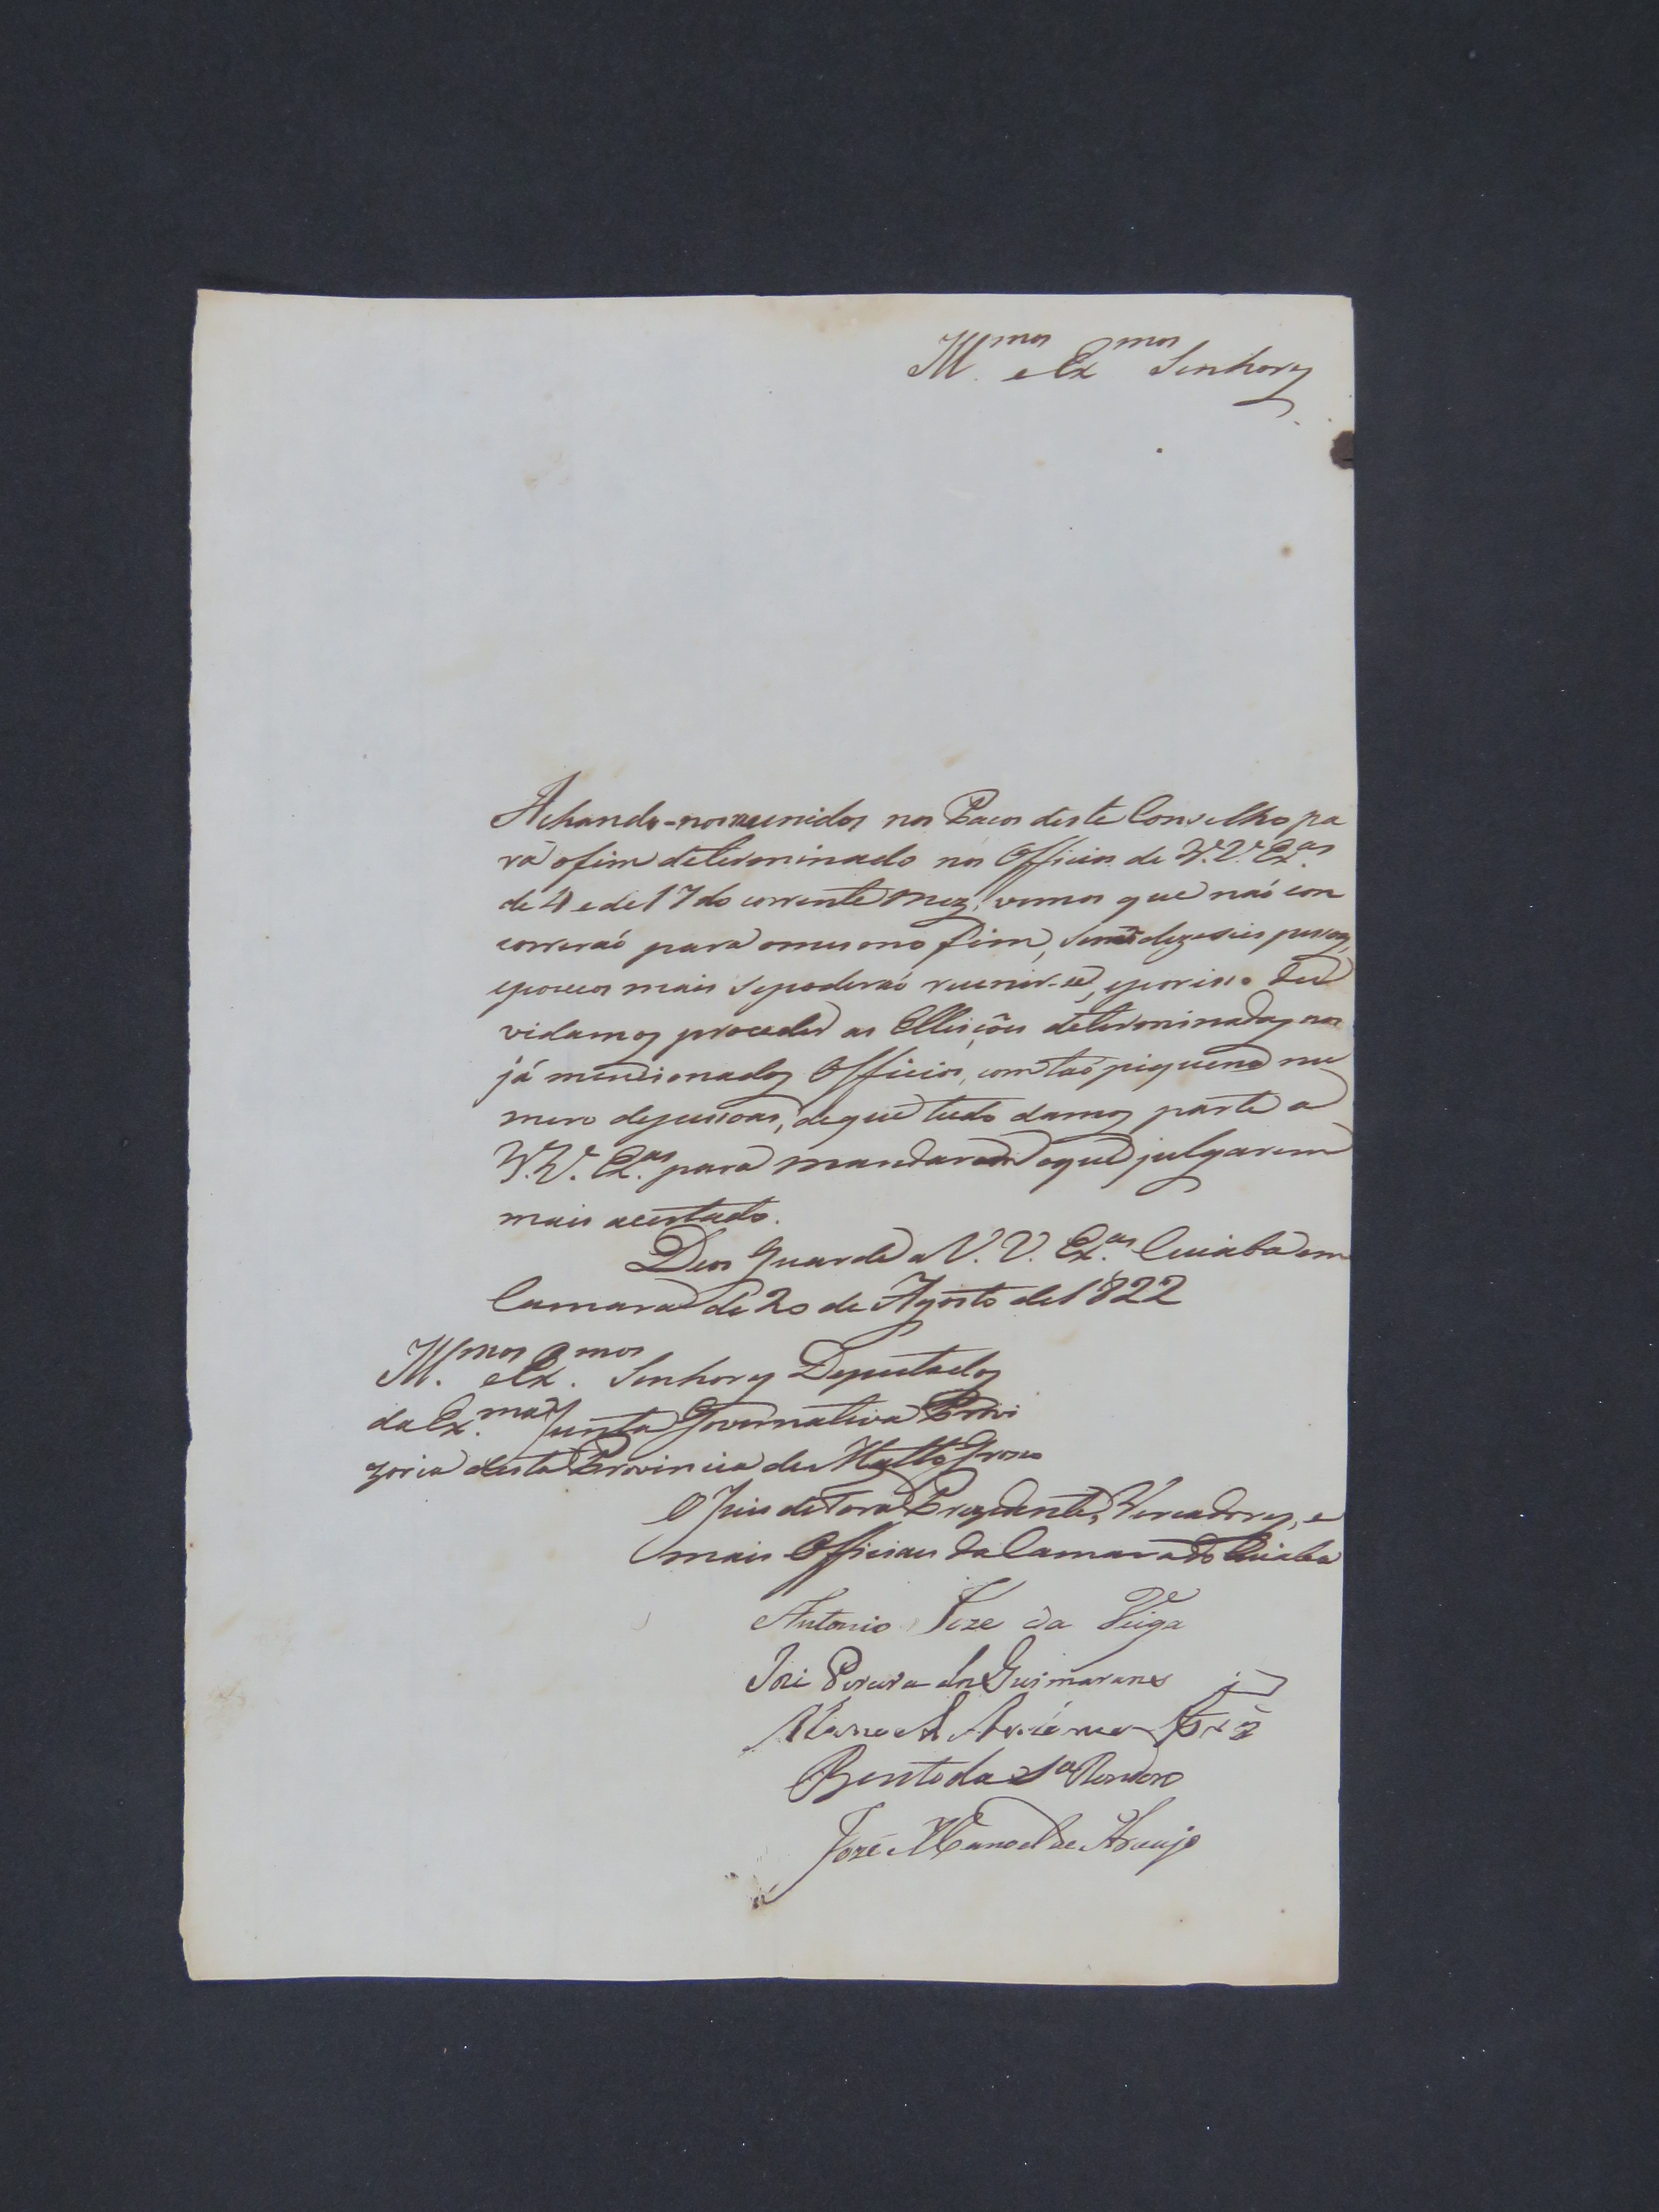 Ill.mos e Ex.mos Senhores
Achando-nos reunidos nos Paços deste Conselho pa
ra o fim determinado nos Officios de V.V. Ex.as
de 4 e de 17 do corrente mez, vemos que naõ con
correraõ para o mesmo fim, senaõ dezeseis pessoas,
e poucos mais se poderaõ reunir-se, e por isso du
vidamos proceder as Elleições determinadas nos
já mencionados Officios, com taõ piqueno nu
mero de pessoas, de que tudo damos parte a
V.V. Ex.as para mandarem o que julgarem
mais acertado.
Deos Guarde a V.V. Ex.as Cuiabá em
Camara de 20 de Agosto de 1822
Ill.mos e Ex.mos Senhores Deputados
da Ex.ma Junta Governativa Provi
zoria desta Provincia de Matto Grosso
O Juis de Fora Prezidente, Vereadores, e
mais Officiaes da Camara do Cuiabá
Antonio Joze da Veiga
José Pereira dos Guimaraens
Manoel
Bento da S.a Rondon
José Manoel de Araujo